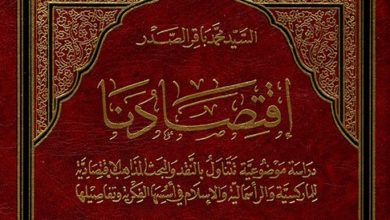 السيد محمد باقر الصدر
إقتصادنا
دراسة موضوعية تتناول بالنقد والبحث المذاهب الاقتصادية
للماركسية والرأسمالية والإسلام في أسسها الفكرية وتفاصيلها